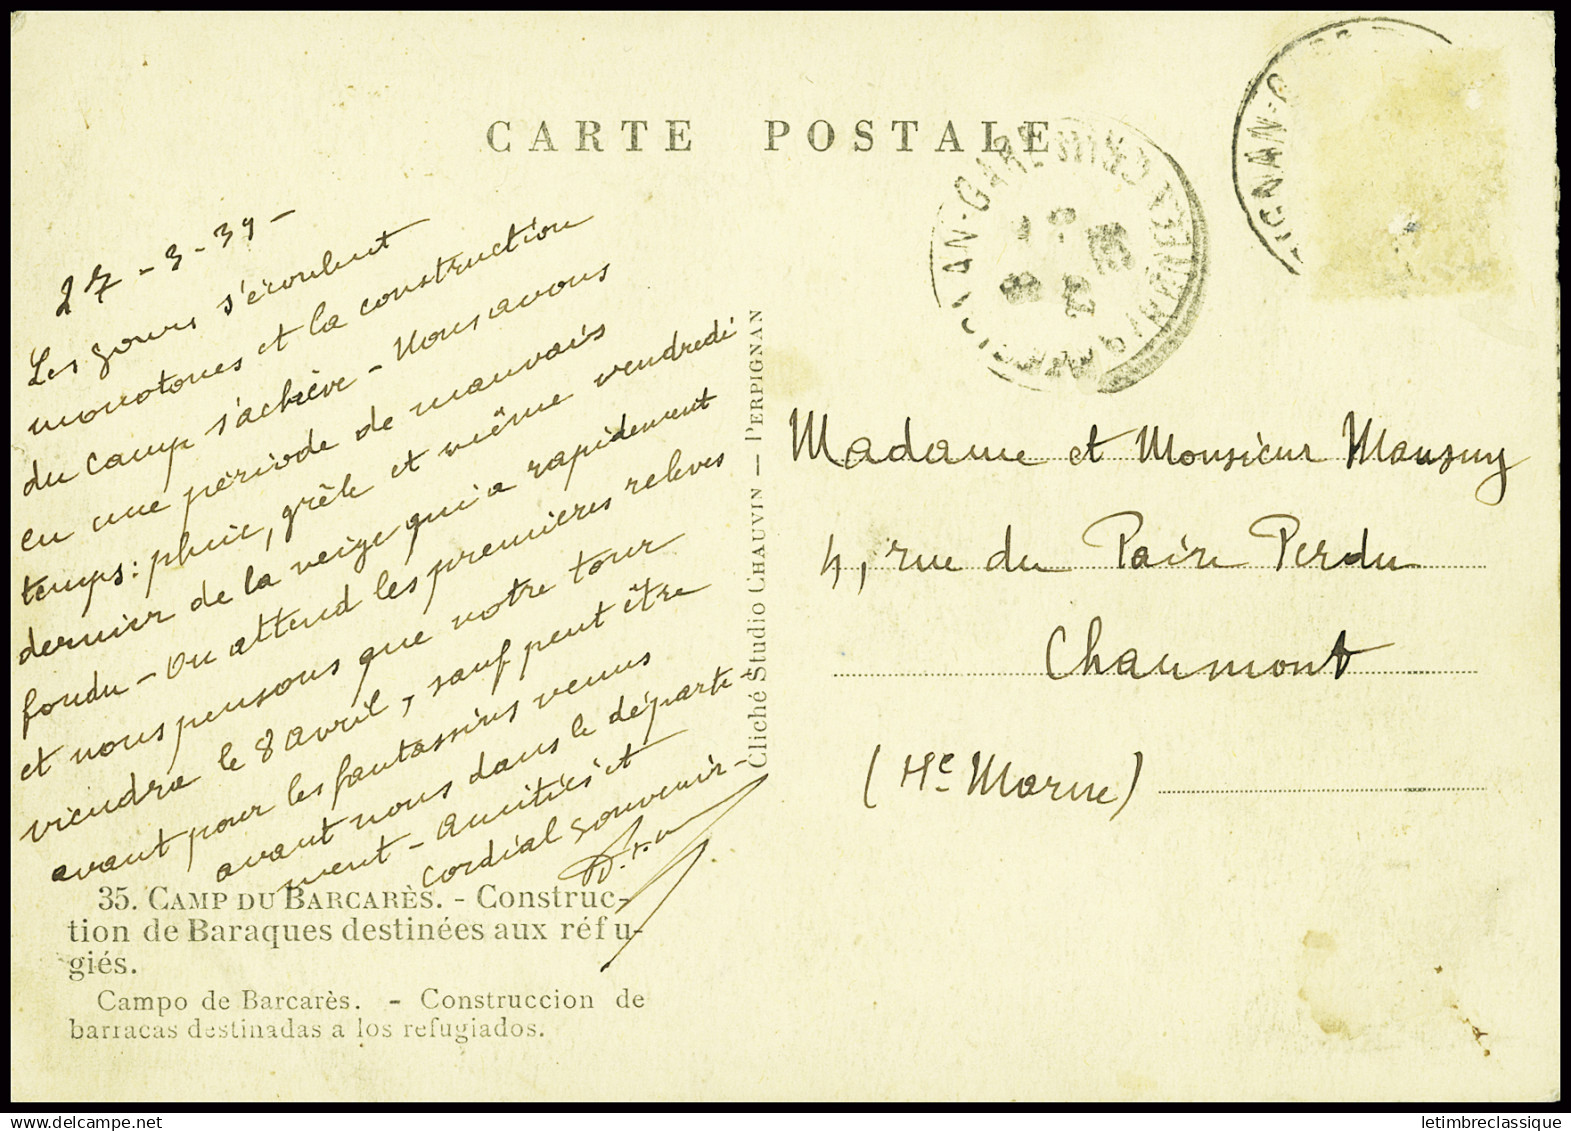 CARTE POSTALE
27-3-39-
Les jours s'écoulent
monotones et la construction
du camp s'achève - Nous avons
eu une période de mauvais
temps : pluie, grêle et même vendredi
dernier de la neige qui a rapidement
fondu - On attend les premières relèves
et nous pensons que notre tour
viendra le 8 avril, sauf peut être
avant pour les fantassins venus
avant nous dans le départe-
ment - Amitiés et
cordial souvenir -
35. CAMP DU BARCARÈS. - Construc-
tion de Baraques destinées aux réfu-
giés.
Campo de Barcarès. - Construccion de
barracas destinadas a los refugiados.
Cliché Studio CHAUVIN — PERPIGNAN
PERPIGNAN-GARE
Madame et Monsieur Mansuy
4, rue du Paire Perdu
Chaumont
(Hte Marne)
letimbreclassique